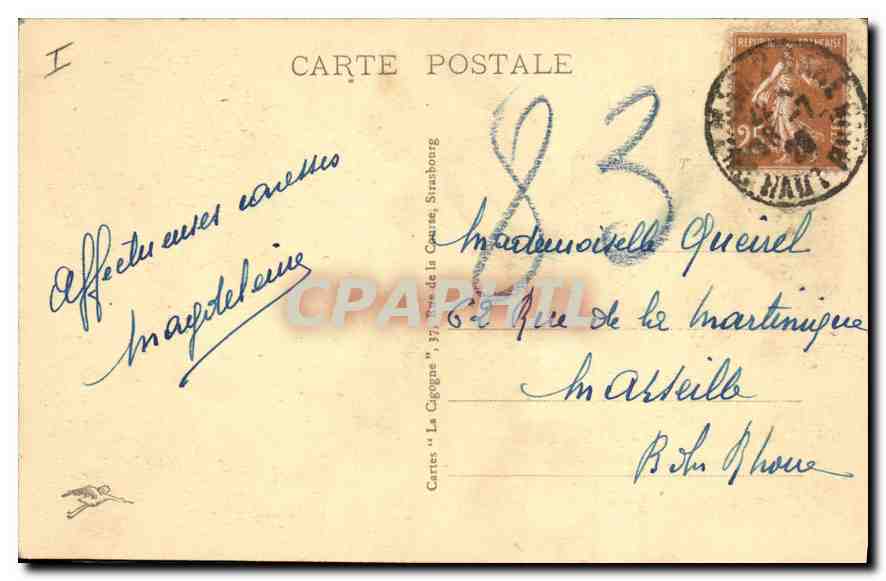 I
CARTE POSTALE
REPUBLIQUE FRANÇAISE
25
HAUT RHIN
83
Affectueuses caresses
Magdeleine
Mademoiselle Queirel
62 Rue de la Martinique
Marseille
B. du Rhone
Cartes "La Cigogne", 37, Rue de la Course, Strasbourg
CPAPHIL